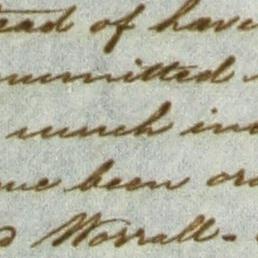 ead of have
ommitted
much inc
ave been or
Worrall-